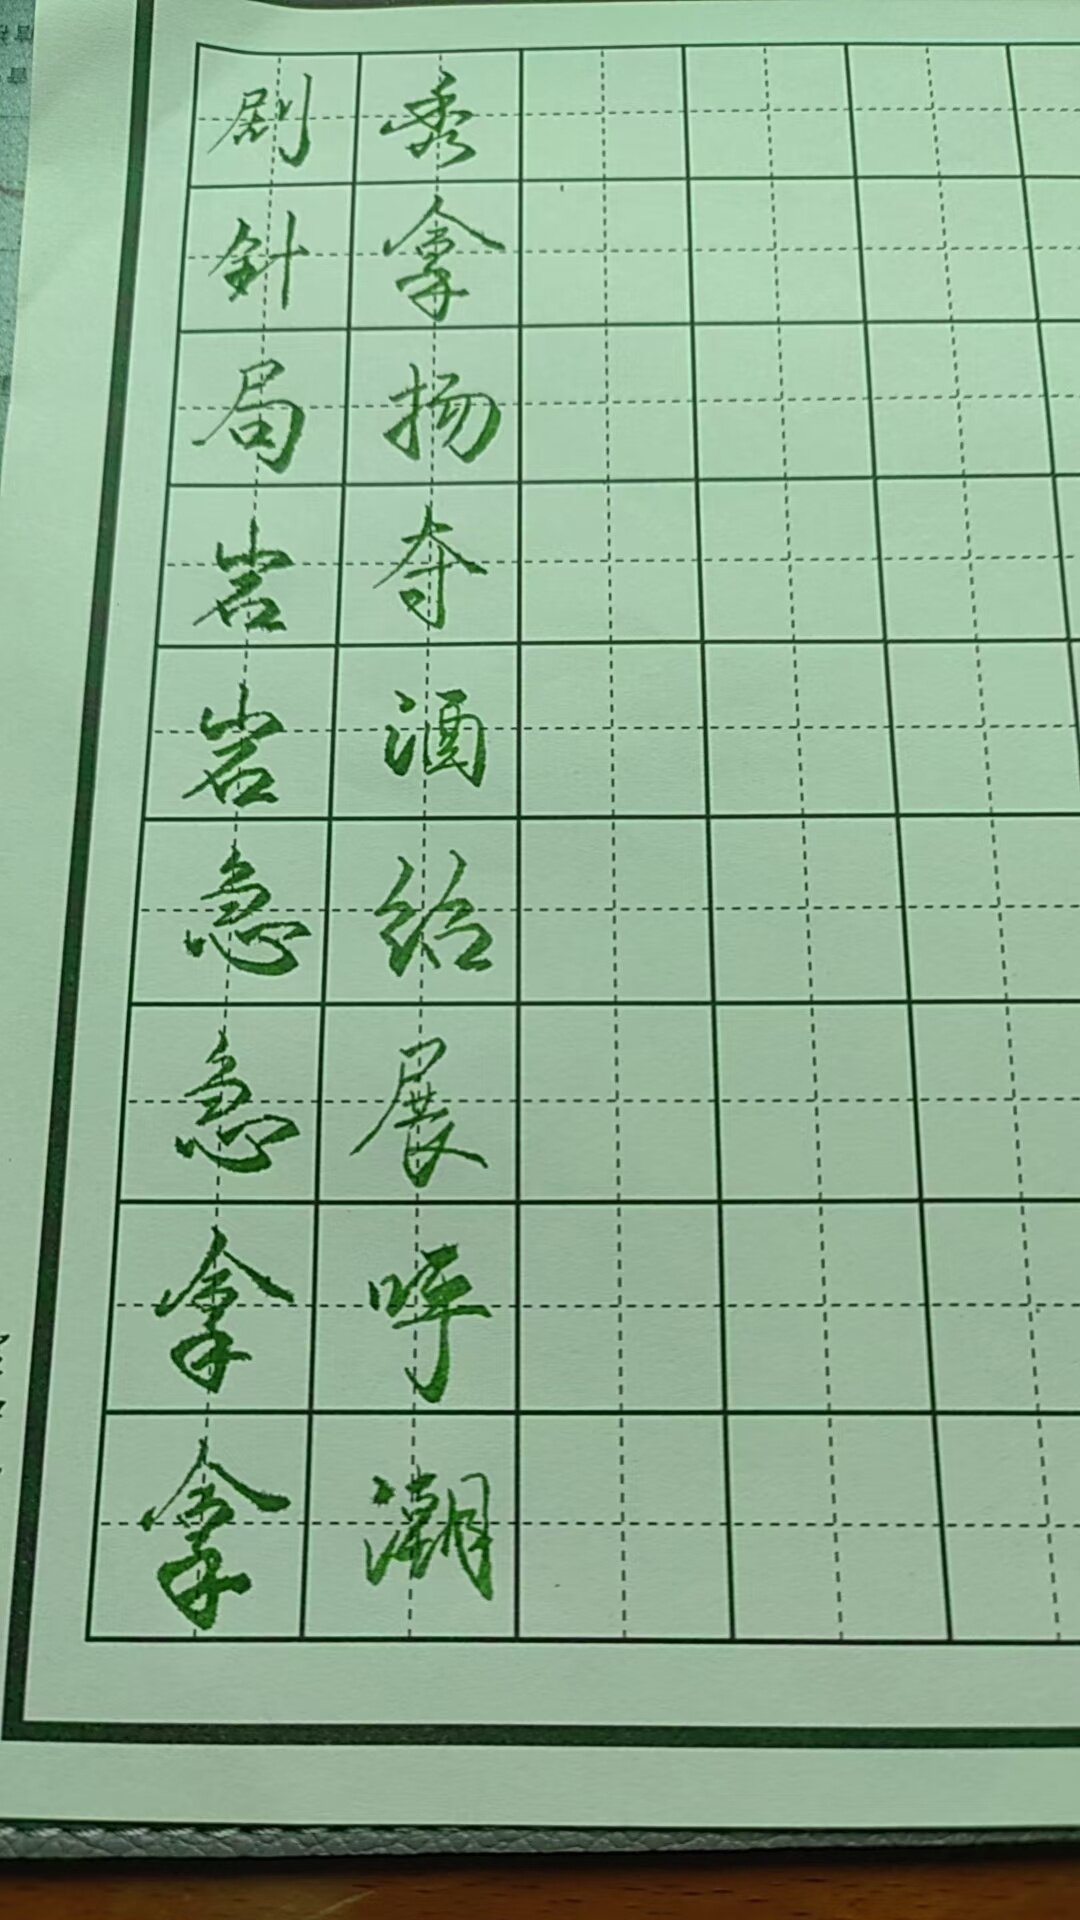 剧针局岩岩急急拿拿
秀拿扬夺酒给展呼潮